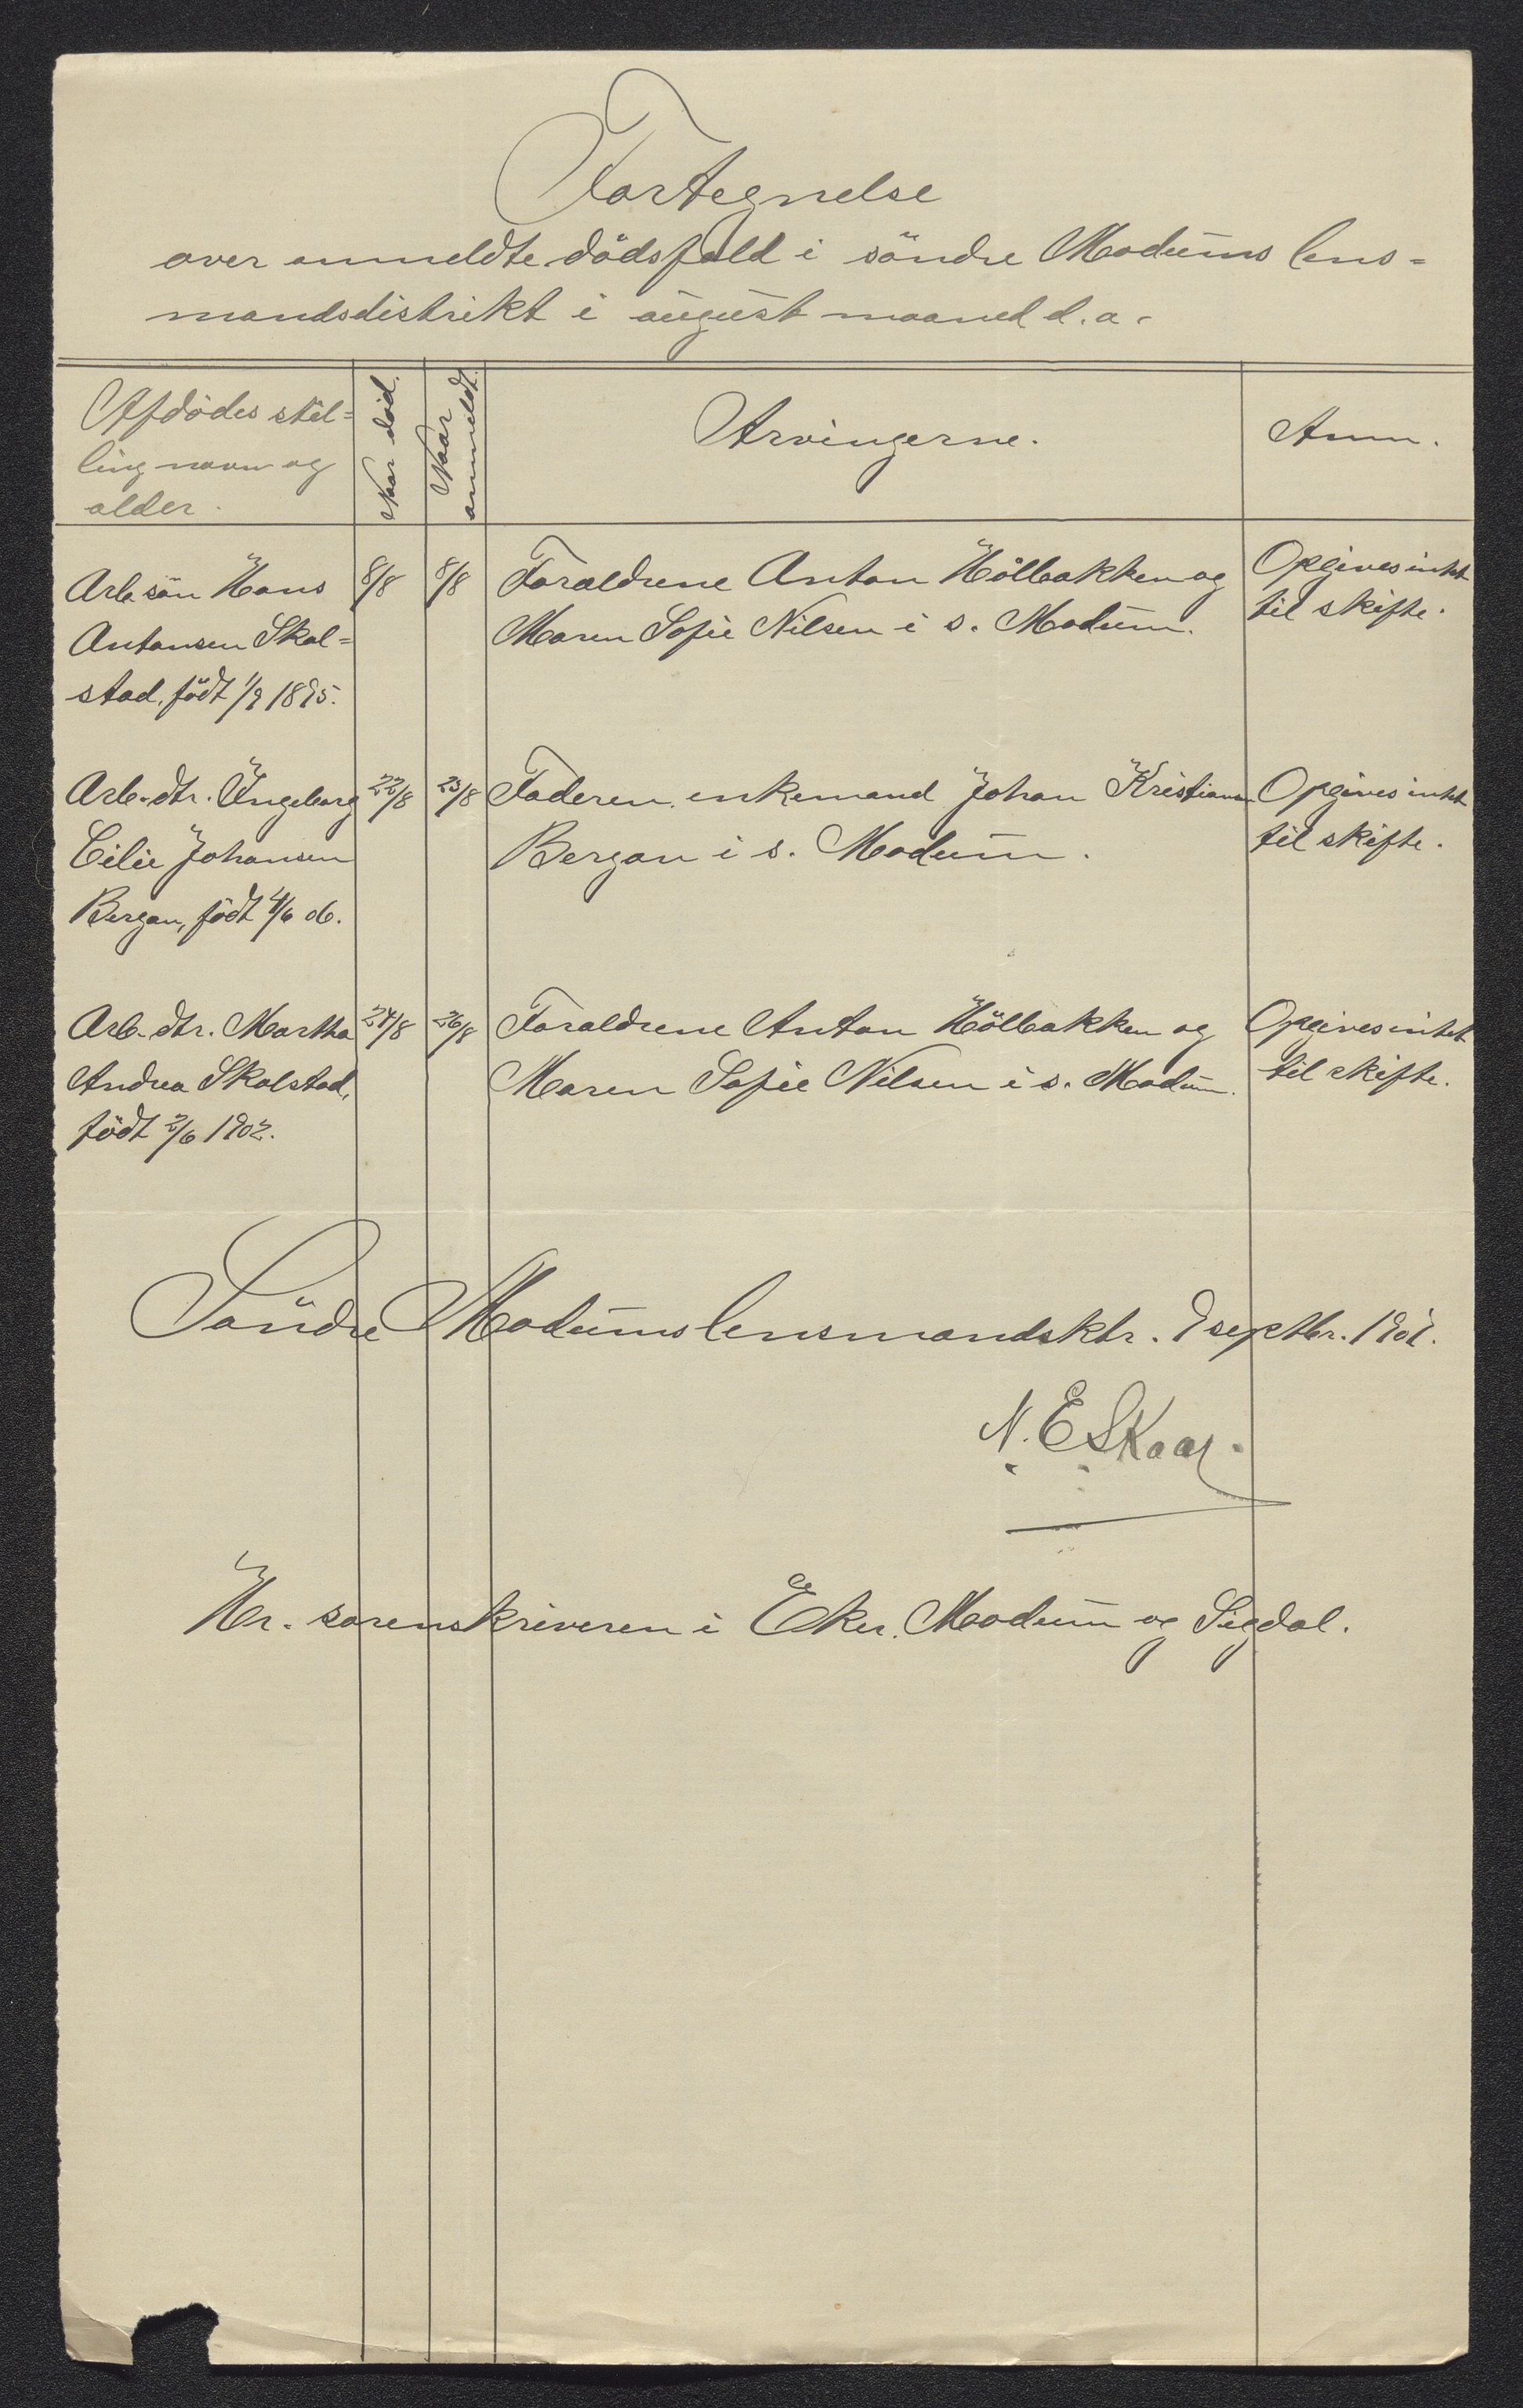 Fortegnelse
over anmeldte dödsfald i söndre Modums lens=
mandsdistrikt i august maaned d.a.
Afdödes stil=
ling navn og
alder.
Naar död.
Naar
anmeldt.
Arvingerne.
Anm.
Arb. sön Hans
Antonsen Skal=
stad, födt 1/9 1895.
8/8
8/8
Forældrene Anton Hölbakken og
Maren Sofie Nilsen i s. Modum.
Opgives intet
til skifte.
Arb. dtr. Ingeborg
Cilie Johansen
Bergan, födt 4/6 06.
22/8
23/8
Faderen, enkemand Johan Kristiansen
Bergan i s. Modum.
Opgives intet
til skifte.
Arb. dtr. Martha
Andrea Skalstad,
födt 2/6 1902.
24/8
26/8
Forældrene Anton Hölbakken og
Maren Sofie Nilsen i s. Modum.
Opgives intet
til skifte.
Söndre Modums lensmandsktr. 9 septbr. 1907.
N. E Skaar.
Hr. sorenskriveren i Eker, Modum og Sigdal.